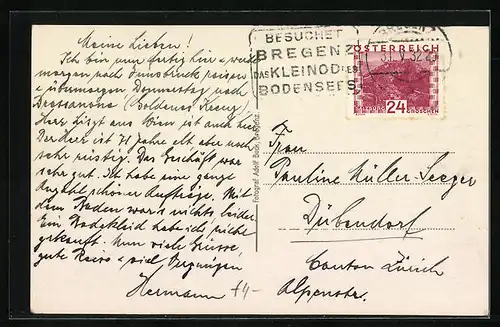 Meine Lieben!
Ich bin nun fertig hier & werde
morgen nach Innsbruck reisen
& übermorgen Donnerstag nach
(Goldenes Kreuz).
Herr aus Wien ist auch hier
Der Herr ist 71 Jahre alt aber noch
sehr rüstig. Das Geschäft war
sehr gut. Ich habe eine ganze
Anzahl schöner Aufträge. Mit
dem Baden war's nichts leider.
Ein Badekleid habe ich nicht
gekauft. Nun viele Grüsse,
gute Reise & viel Vergnügen
Hermann
4.-
Fotograf Adolf Beck, Bregenz.
BESUCHET
BREGENZ
DAS KLEINOD DES
BODENSEES
31.V.32
ÖSTERREICH
24
GROSCHEN
Frau
Pauline Müller-Seeger
Dübendorf
Canton Zürich
Alpenstr.